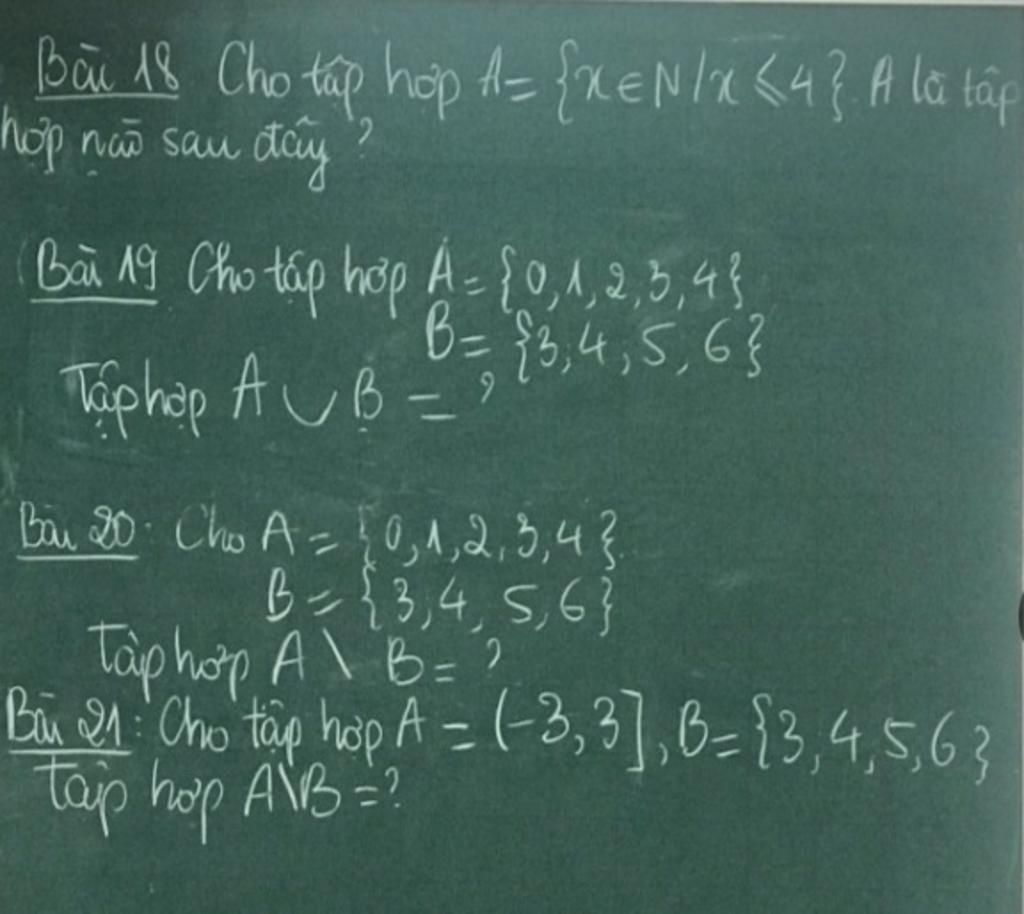 Bài 18 Cho tập hợp A = {x ∈ N / x ⩽ 4}. A là tập
hợp nào sau đây ?
Bài 19 Cho tập hợp A = {0, 1, 2, 3, 4}
B = {3, 4, 5, 6}
Tập hợp A ∪ B = ?
Bài 20: Cho A = {0, 1, 2, 3, 4}.
B = {3, 4, 5, 6}
Tập hợp A \ B = ?
Bài 21: Cho tập hợp A = (-3, 3], B = {3, 4, 5, 6}
Tập hợp A\B = ?